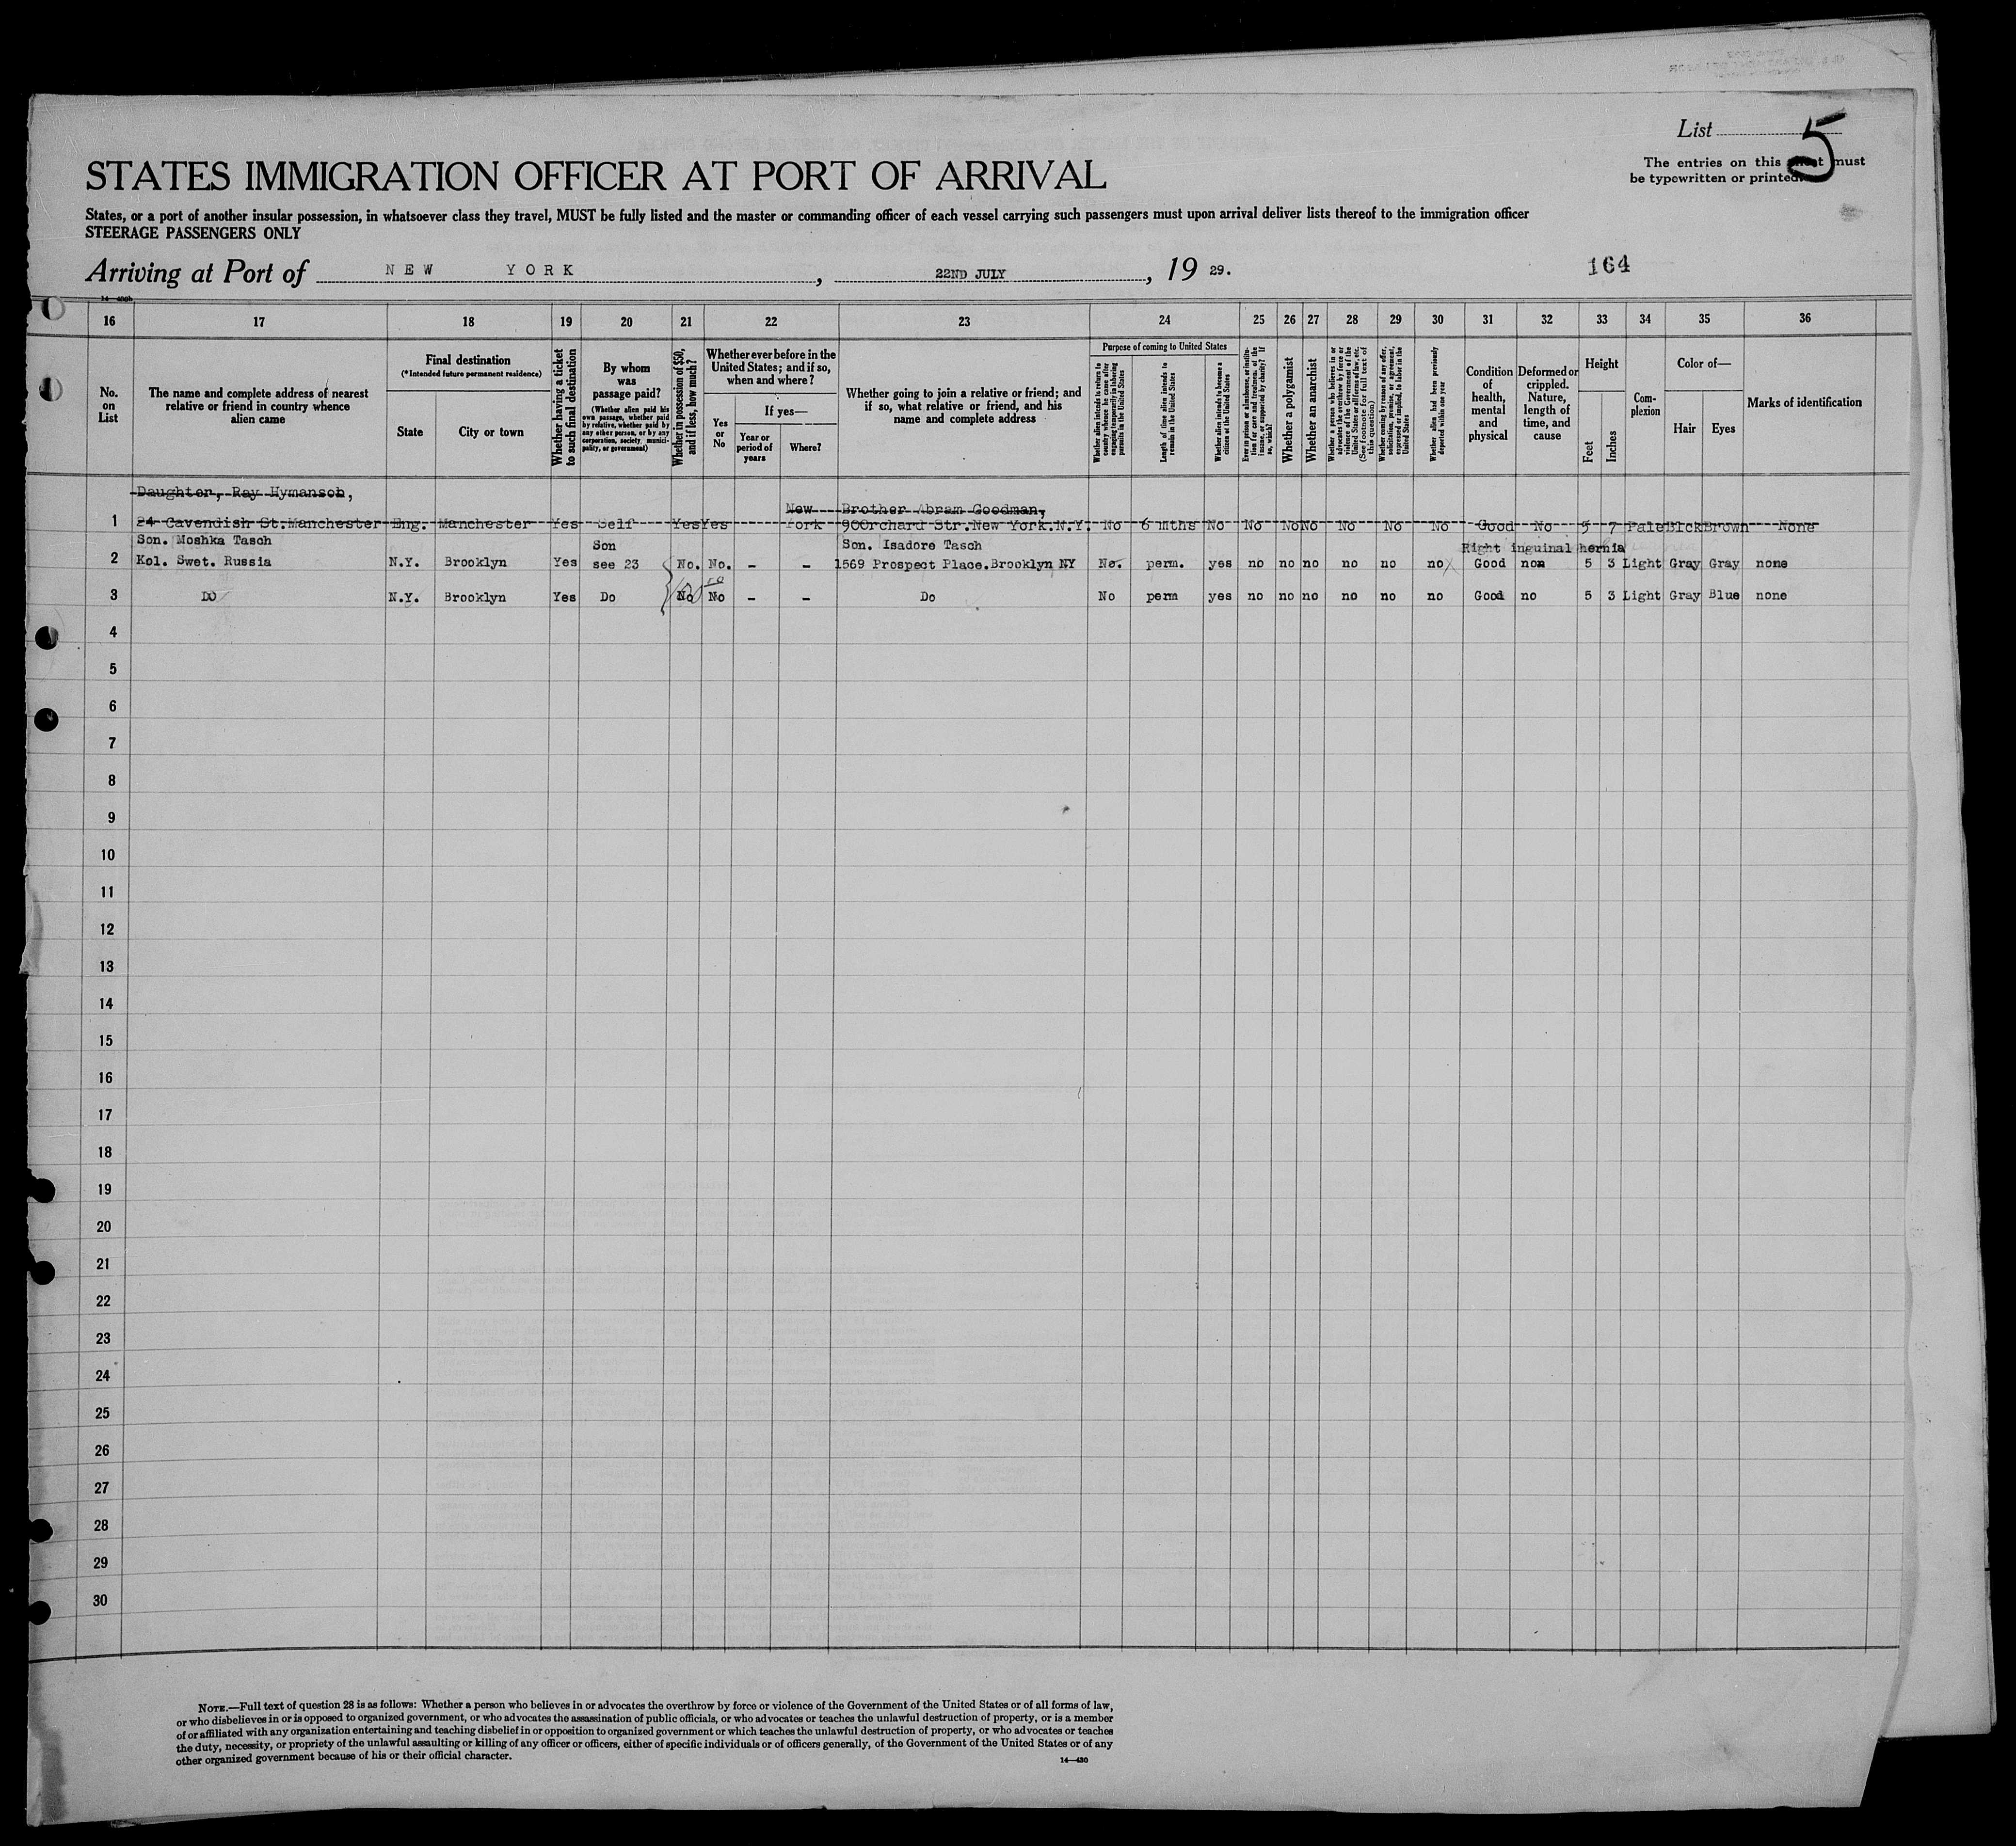 List 5
The entries on this sheet must
be typewritten or printed.
STATES IMMIGRATION OFFICER AT PORT OF ARRIVAL
States, or a port of another insular possession, in whatsoever class they travel, MUST be fully listed and the master or commanding officer of each vessel carrying such passengers must upon arrival deliver lists thereof to the immigration officer
STEERAGE PASSENGERS ONLY
Arriving at Port of NEW YORK, 22ND JULY, 19 29.
164
16 17 18 19 20 21 22 23 24 25 26 27 28 29 30 31 32 33 34 35 36
No. on List
The name and complete address of nearest relative or friend in country whence alien came
Final destination
(*Intended future permanent residence)
State
City or town
Whether having a ticket to such final destination
By whom was passage paid?
(Whether alien paid his own passage, whether paid by relative, whether paid by any other person, or by any corporation, society, municipality, or government)
Whether in possession of $50, and if less, how much?
Whether ever before in the United States; and if so, when and where?
Yes or No
If yes—
Year or period of years
Where?
Whether going to join a relative or friend; and if so, what relative or friend, and his name and complete address
Purpose of coming to United States
Whether alien intends to return to country whence he came after engaging temporarily in laboring pursuits in the United States
Length of time alien intends to remain in the United States
Whether alien intends to become a citizen of the United States
Ever in prison or almshouse, or institution for care and treatment of the insane, or supported by charity? If so, which?
Whether a polygamist
Whether an anarchist
Whether a person who believes in or advocates the overthrow by force or violence of the Government of the United States or all forms of law, etc. (See footnote for full text of this question)
Whether coming by reason of any offer, solicitation, promise, or agreement, expressed or implied, to labor in the United States
Whether alien had been previously deported within one year
Condition of health, mental and physical
Deformed or crippled. Nature, length of time, and cause
Height
Feet
Inches
Complexion
Color of—
Hair
Eyes
Marks of identification
Daughter, Ray Hymanson, New Brother Abram Goodman,
1 24 Cavendish St. Manchester Eng. Manchester Yes Self Yes Yes York 90 Orchard Str. New York. N.Y. No 6 mths No No No No No No No Good No 5 7 Pale Blck Brown None
Son. Moshka Tasch Son Son. Isadore Tasch Right inguinal hernia
2 Kol. Swet. Russia N.Y. Brooklyn Yes see 23 No. No. - - 1569 Prospect Place. Brooklyn NY No. perm. yes no no no no no no Good non 5 3 Light Gray Gray none
3 Do N.Y. Brooklyn Yes Do No No - - Do No perm yes no no no no no no Good no 5 3 Light Gray Blue none
4
5
6
7
8
9
10
11
12
13
14
15
16
17
18
19
20
21
22
23
24
25
26
27
28
29
30
NOTE.—Full text of question 28 is as follows: Whether a person who believes in or advocates the overthrow by force or violence of the Government of the United States or of all forms of law,
or who disbelieves in or is opposed to organized government, or who advocates the assassination of public officials, or who advocates or teaches the unlawful destruction of property, or is a member
of or affiliated with any organization entertaining and teaching disbelief in or opposition to organized government or which teaches the unlawful destruction of property, or who advocates or teaches
the duty, necessity, or propriety of the unlawful assaulting or killing of any officer or officers, either of specific individuals or of officers generally, of the Government of the United States or of any
other organized government because of his or their official character.
14—430